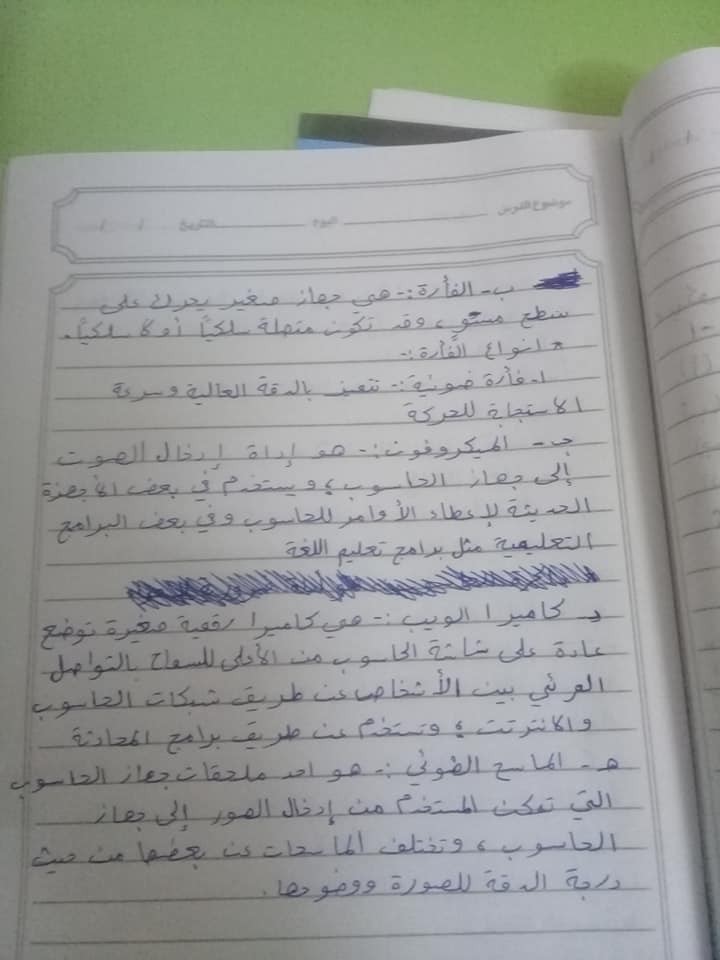 موضوع الدرس اليوم التاريخ / /
ب- الفأرة:- هي جهاز صغير يحرك على
سطح مستوٍ، وقد تكون متصلة سلكياً أو لا سلكياً.
* انواع الفأرة:-
١- فأرة ضوئية:- تتميز بالدقة العالية وسرعة
الاستجابة للحركة
جـ- الميكروفون:- هو إداة إدخال الصوت
إلى جهاز الحاسوب، ويستخدم في بعض الأجهزة
الحديثة لإعطاء الأوامر للحاسوب وفي بعض البرامج
التعليمية مثل برامج تعليم اللغة
د- كاميرا الويب:- هي كاميرا رقمية صغيرة توضع
عادة على شاشة الحاسوب من الأعلى للسماح بالتواصل
المرئي بين الأشخاص عن طريق شبكات الحاسوب
والانترنت، وتستخدم عن طريق برامج المحادثة
هـ- الماسح الضوئي:- هو احد ملحقات جهاز الحاسوب
التي تمكن المستخدم من إدخال الصور إلى جهاز
الحاسوب، وتختلف الماسحات عن بعضها من حيث
درجة الدقة للصورة ووضوحها.